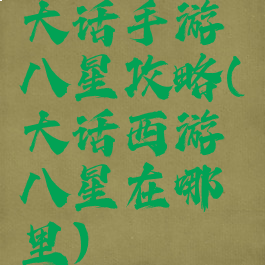 大话手游
八星攻略(
大话西游
八星在哪
里)